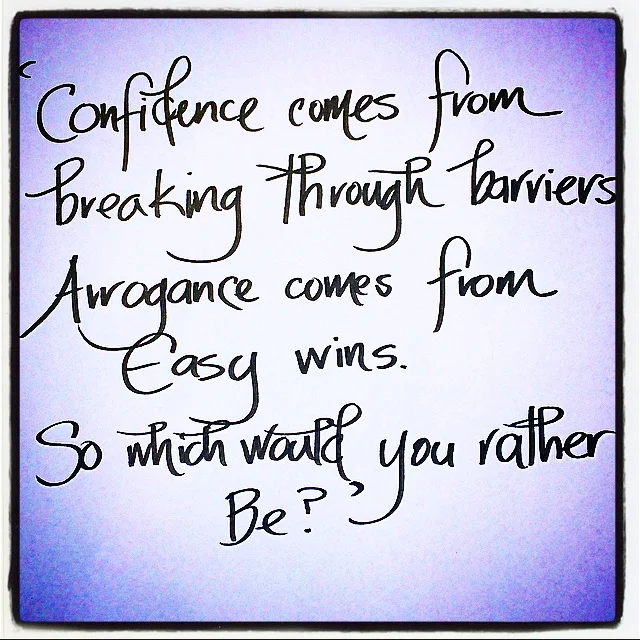 'Confidence comes from
breaking through barriers
Arrogance comes from
Easy wins.
So which would you rather
Be?'